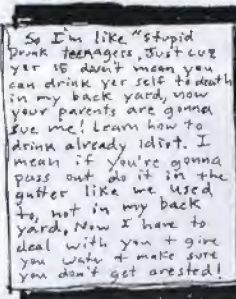 So I'm like "Stupid
Drunk teenagers, Just cuz
yer 15 don't mean you
can drink yer self to death
in my back yard, now
your parents are gonna
sue me! Learn how to
drink already idiot. I
mean if you're gonna
pass out do it in the
gutter like we used
to, not in my back
yard, Now I have to
deal with you + give
you water + make sure
you don't get arested!